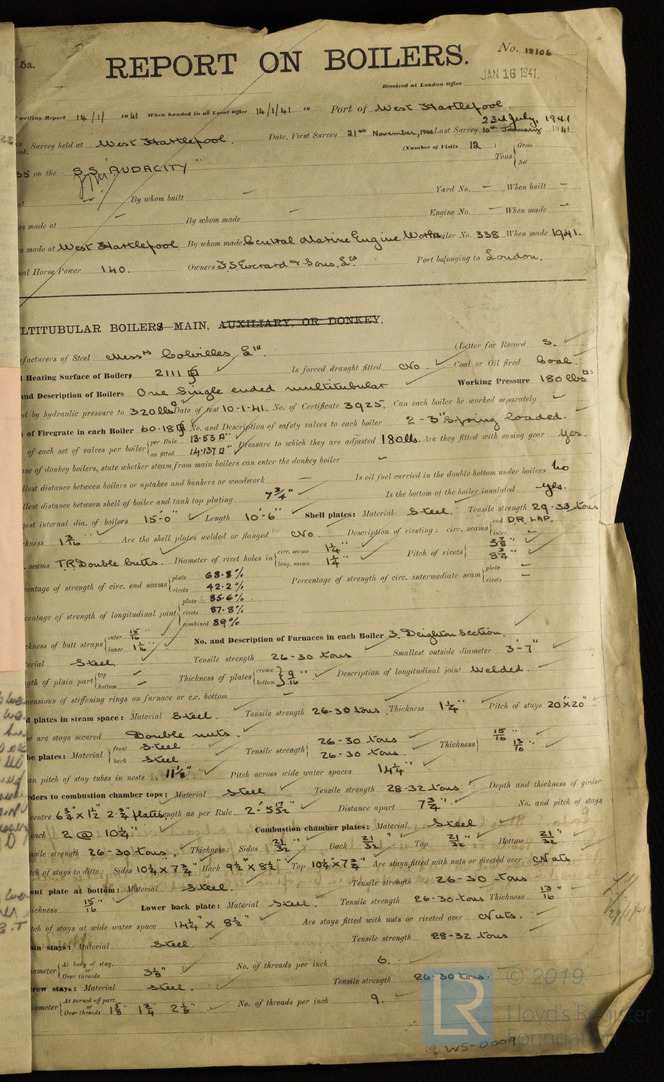 5a.
REPORT ON BOILERS.
No. 18106
Received at London Office
JAN 16 1941
writing Report 14/1/ 1941 When handed in at Local Office 14/1/41 19 Port of West Hartlepool.
Survey held at West Hartlepool. Date, First Survey 21st November, 1940 Last Survey 10th January 1941
23rd July, 1941
(Number of Visits 12 )
on the S.S. "AUDACITY"
Tons { Gross
Net
By whom built — Yard No. — When built —
made at — By whom made — Engine No. — When made —
made at West Hartlepool By whom made Central Marine Engine Works Boiler No. 338 When made 1941.
Horse Power 140. Owners F.S. Everard & Sons, Ld Port belonging to London.
MULTITUBULAR BOILERS MAIN, AUXILIARY, OR DONKEY.
facturers of Steel Messrs Colvilles Ld. (Letter for Record S.
Heating Surface of Boilers 2111 Is forced draught fitted No. Coal or Oil fired Coal.
and Description of Boilers One Single ended multitubular Working Pressure 180 lbs
by hydraulic pressure to 320 lbs Date of test 10-1-41. No. of Certificate 3925. Can each boiler be worked separately —
of Firegrate in each Boiler 60.18 No. and Description of safety valves to each boiler 2 - 3" Spring loaded.
of each set of valves per boiler { per Rule 13.53
as fitted 14.137 Pressure to which they are adjusted 180 lbs. Are they fitted with easing gear Yes.
of donkey boilers, state whether steam from main boilers can enter the donkey boiler —
distance between boilers or uptakes and bunkers or woodwork — Is oil fuel carried in the double bottom under boilers No
distance between shell of boiler and tank top plating 7 3/4" Is the bottom of the boiler insulated yes.
internal dia. of boilers 15'-0" Length 10'-6" Shell plates: Material Steel. Tensile strength 29-33 tons
Are the shell plates welded or flanged No. Description of riveting: circ. seams { end D.R. LAP.
inter. —
seams T.R. Double butts. Diameter of rivet holes in { circ. seams 1 1/4"
long. seams 1 1/4" Pitch of rivets { 3 7/8"
8 3/4"
percentage of strength of circ. end seams { plate 68.8%
rivets 42.2% Percentage of strength of circ. intermediate seam { plate —
rivets —
percentage of strength of longitudinal joint { plate 85.6%
rivets 87.8%
combined 89%
thickness of butt straps { outer 15/16"
inner 1 1/16" No. and Description of Furnaces in each Boiler 3, Deighton Section.
Material Steel Tensile strength 26-30 tons Smallest outside diameter 3'-7"
Length of plain part { top —
bottom — Thickness of plates { crown
bottom } 9/16" Description of longitudinal joint Welded.
Dimensions of stiffening rings on furnace or c.c. bottom —
plates in steam space: Material Steel. Tensile strength 26-30 tons. Thickness 1 1/4" Pitch of stays 20" x 20"
are stays secured Double nuts.
plates: Material { front Steel
back Steel Tensile strength { 26-30 tons
26-30 tons. Thickness { 15/16
13/16"
pitch of stay tubes in nests 11 1/8" Pitch across wide water spaces 14 1/4"
Girders to combustion chamber tops: Material Steel Tensile strength 28-32 tons Depth and thickness of girder
centre 6 3/4" x 1 1/2" 2-3/4" plates Length as per Rule 2'-5 17/32" Distance apart 7 3/4" No. and pitch of stays
each 2 @ 10 1/4" Combustion chamber plates: Material Steel
Tensile strength 26-30 tons, Thickness: Sides 21/32" Back 21/32" Top 21/32" Bottom 21/32"
Pitch of stays to ditto: Sides 10 1/4" x 7 3/4" Back 9 1/2" x 8 1/2" Top 10 1/4" x 7 3/4" Are stays fitted with nuts or riveted over Nuts
Front plate at bottom: Material Steel. Tensile strength 26-30 tons
Thickness 15/16 Lower back plate: Material Steel Tensile strength 26-30 tons Thickness 13/16"
Pitch of stays at wide water space 14 1/4" x 8 1/2" Are stays fitted with nuts or riveted over Nuts.
Main stays: Material Steel Tensile strength 28-32 tons
Diameter { At body of stay,
or
Over threads 3 1/8" No. of threads per inch 6.
Screw stays: Material Steel. Tensile strength 26-30 tons.
Diameter { At turned off part,
or
Over threads 1 5/8" 1 3/4" 2 1/8" No. of threads per inch 9.
© 2019
LR
Lloyd's Register
Foundation
WS-0009